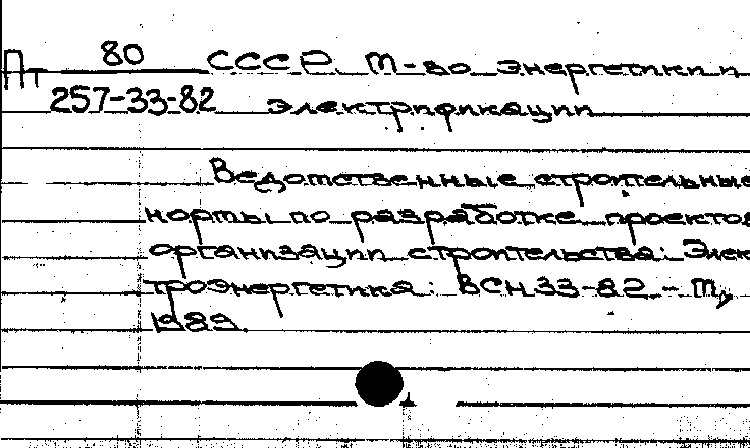 Пт 80 СССР. М-во энергетики и
257-33-82 электрификации
Ведомственные строительные
нормы по разработке проектов
организации строительства: Элек
троэнергетика: ВСН 33-82. - М.,
1989.